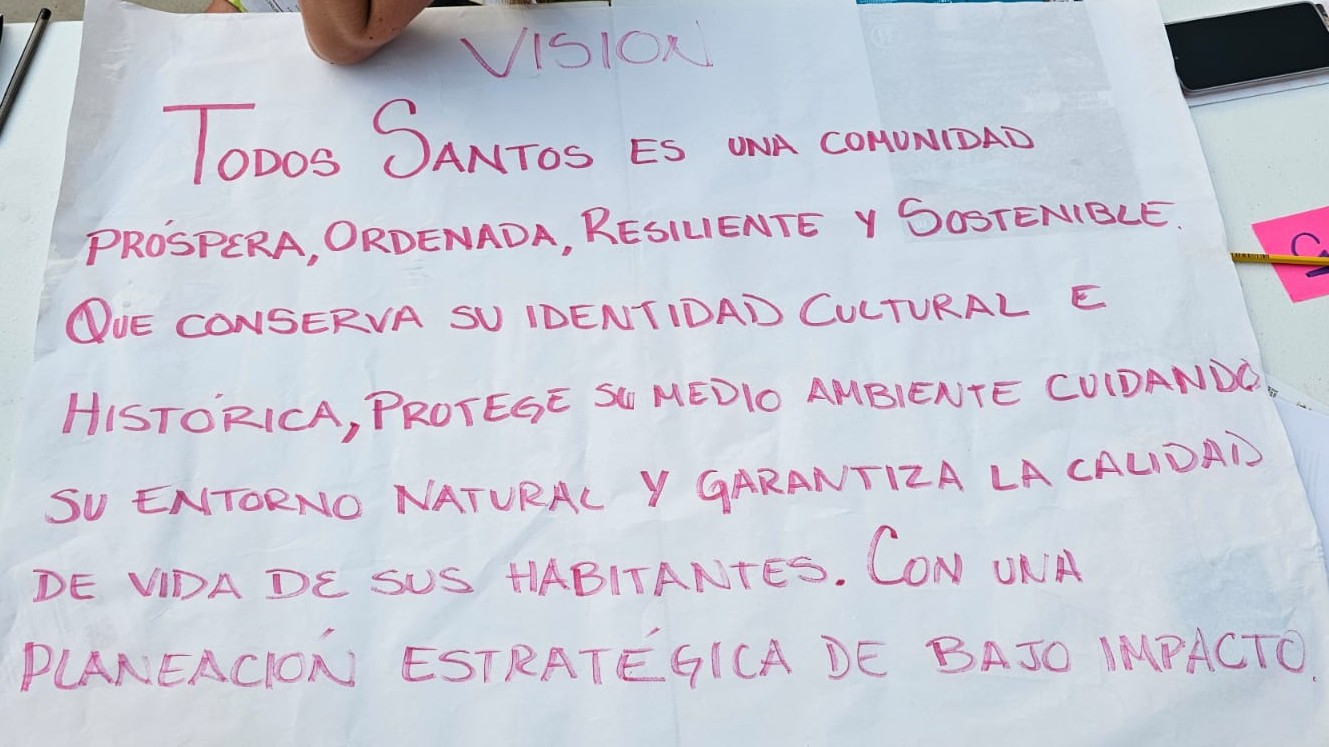 VISION
TODOS SANTOS ES UNA COMUNIDAD
PRÓSPERA, ORDENADA, RESILIENTE Y SOSTENIBLE.
QUE CONSERVA SU IDENTIDAD CULTURAL E
HISTÓRICA, PROTEGE SU MEDIO AMBIENTE CUIDANDO
SU ENTORNO NATURAL Y GARANTIZA LA CALIDAD
DE VIDA DE SUS HABITANTES. CON UNA
PLANEACIÓN ESTRATÉGICA DE BAJO IMPACTO.